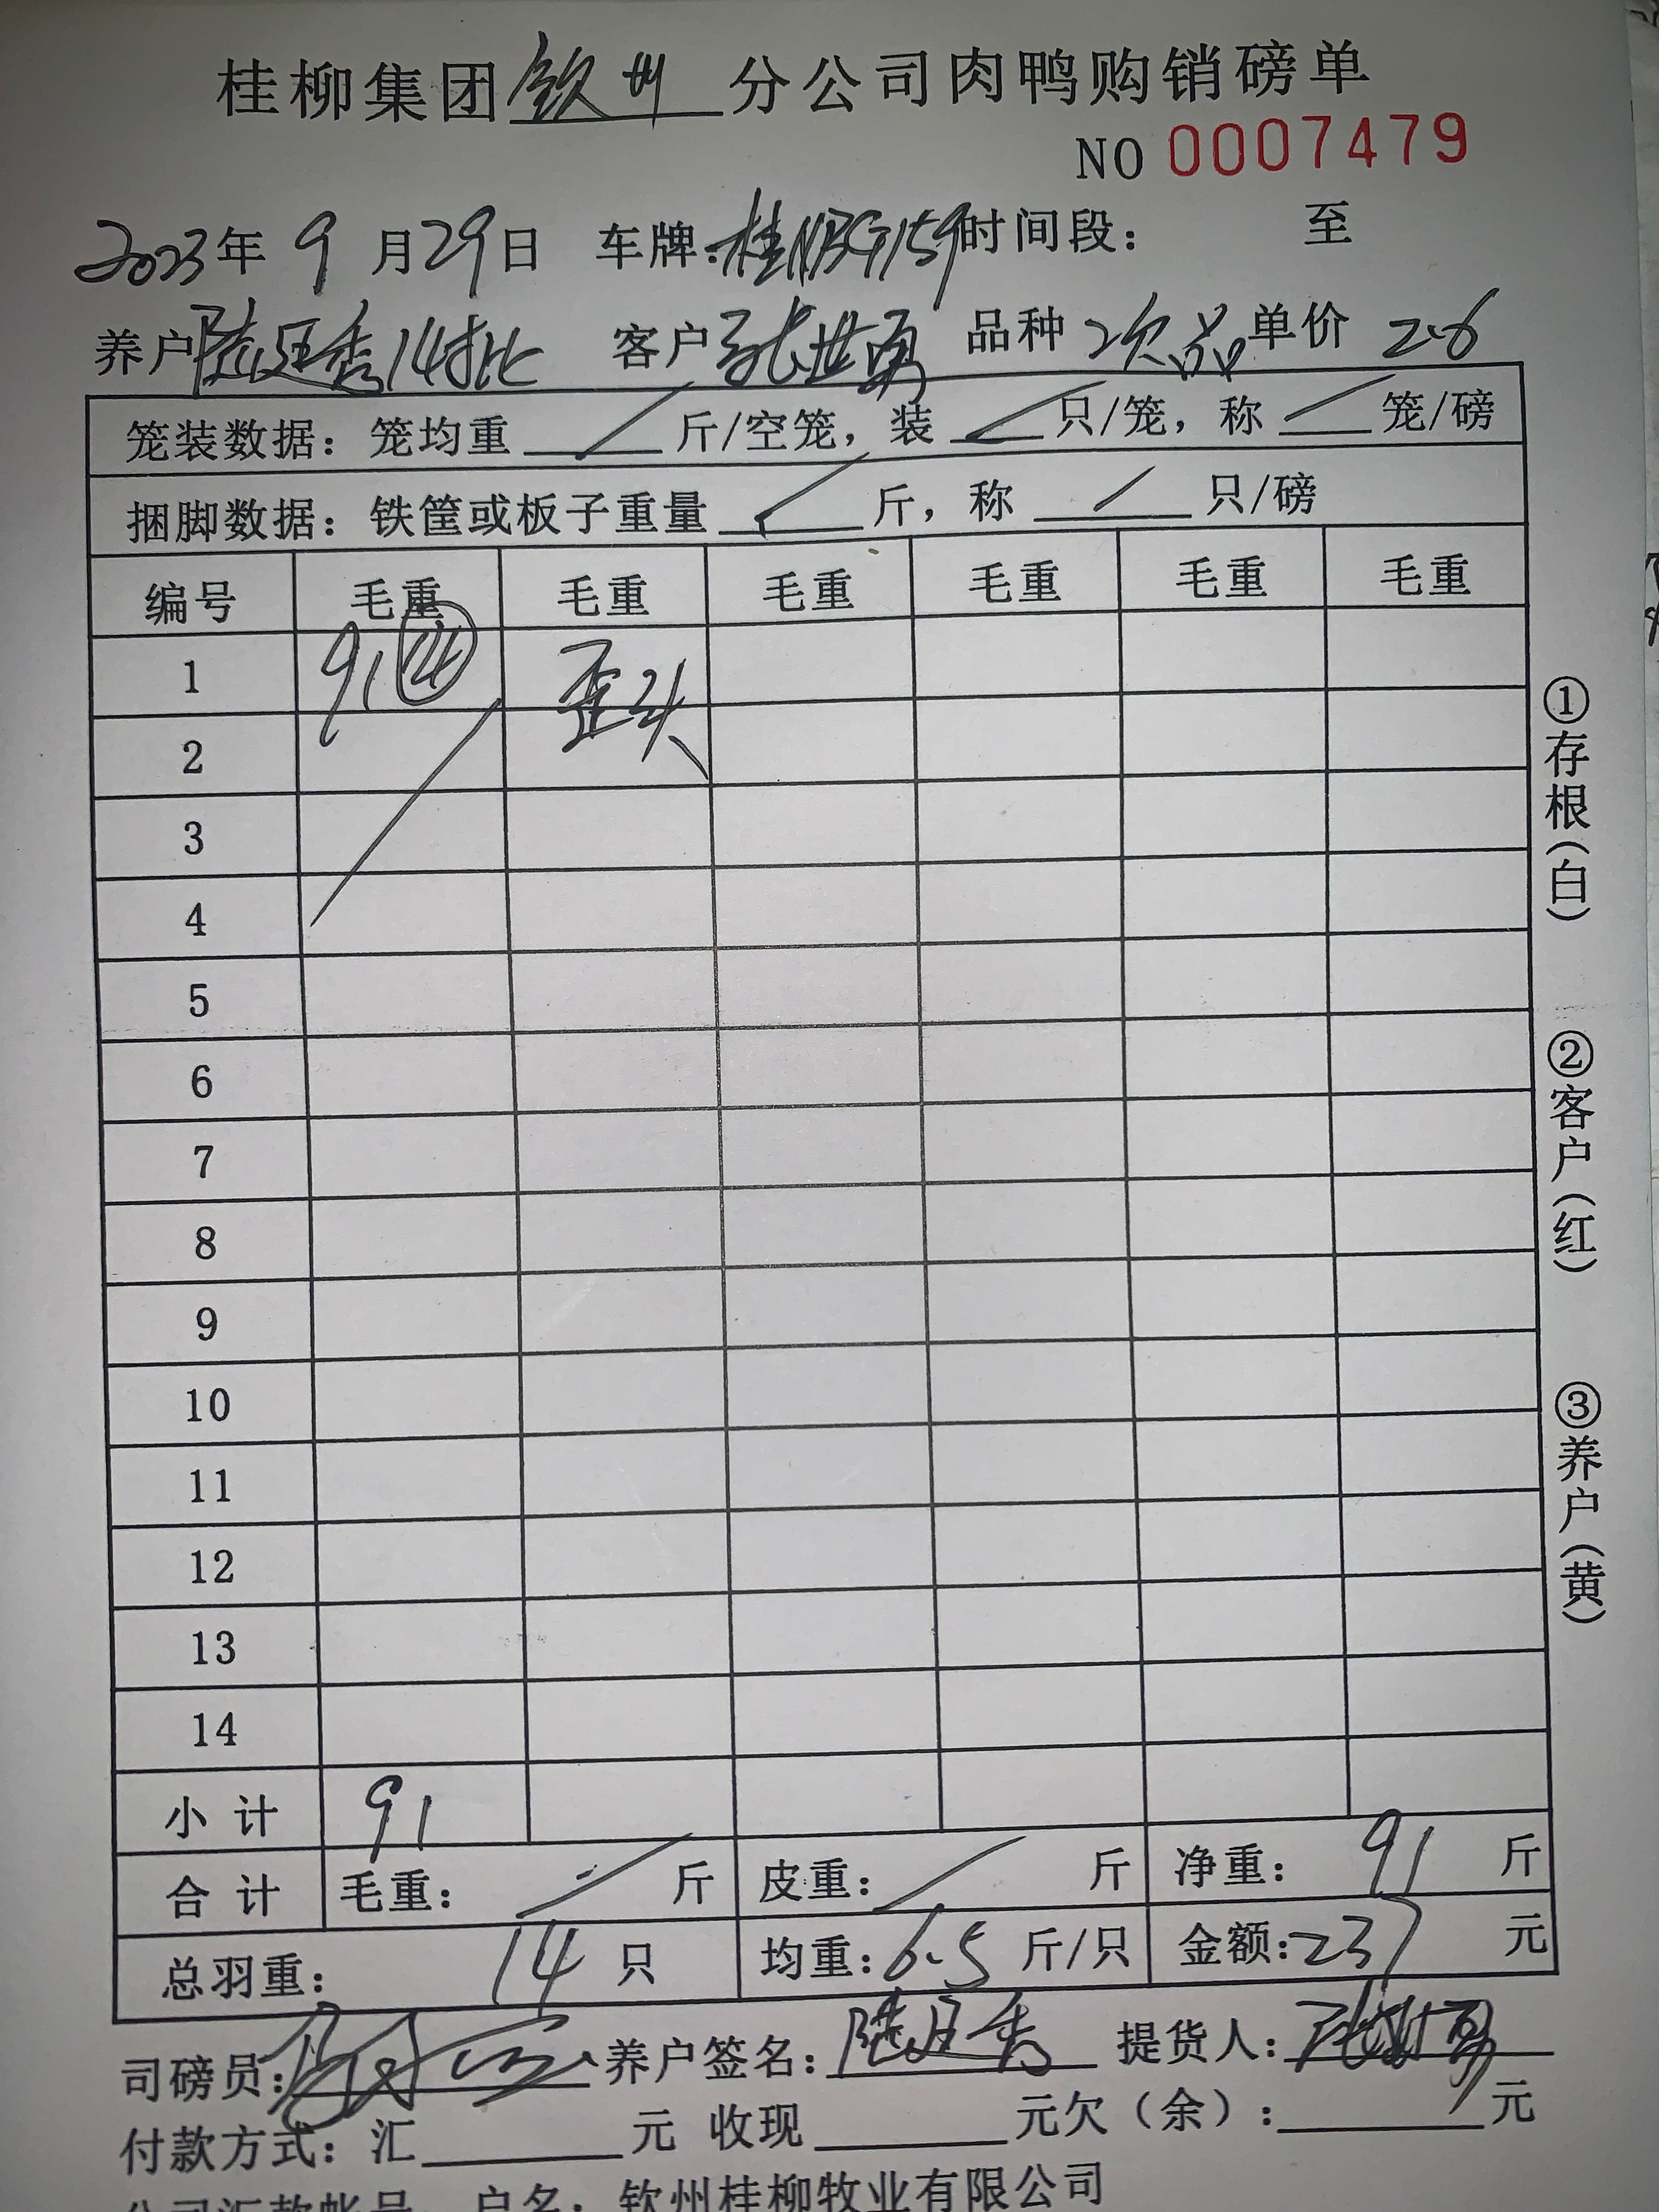 桂柳集团钦州分公司肉鸭购销磅单
NO 0007479
2023年 9 月29日 车牌:桂NBG159时间段: 至
养户陆廷秀14批 客户张世勇 品种 次品 单价 2.6
笼装数据: 笼均重 / 斤/空笼, 装 / 只/笼, 称 / 笼/磅
捆脚数据: 铁筐或板子重量 / 斤, 称 / 只/磅
编号 毛重 毛重 毛重 毛重 毛重 毛重
1 91 ⑭ 歪头
2
3
4
5
6
7
8
9
10
11
12
13
14
小计 91
合计 毛重: / 斤 皮重: / 斤 净重: 91 斤
总羽重: 14 只 均重: 6.5 斤/只 金额: 237 元
司磅员: 养户签名: 陆廷秀 提货人: 张世勇
付款方式: 汇 元 收现 元欠(余): 元
公司汇款帐号 户名: 钦州桂柳牧业有限公司
①存根(白)
②客户(红)
③养户(黄)